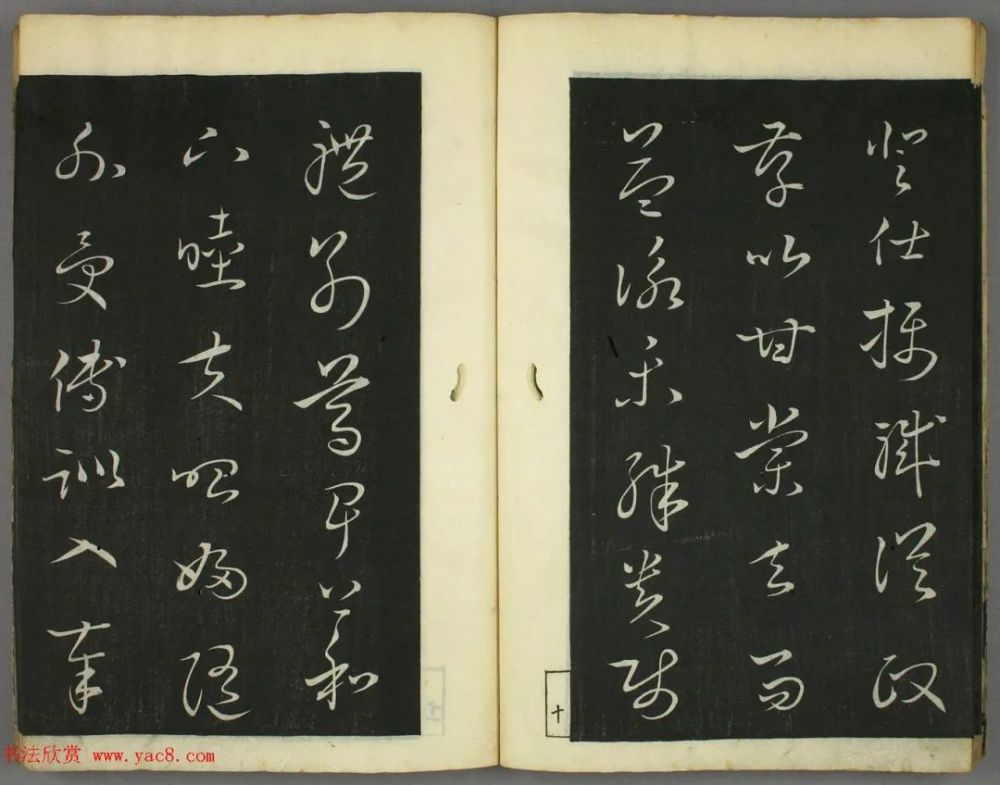 登仕攝職從政
存以甘棠去而
益詠樂殊貴賤
十
禮別尊卑上和
下睦夫唱婦隨
外受傅訓入奉
书法欣赏 www.yac8.com